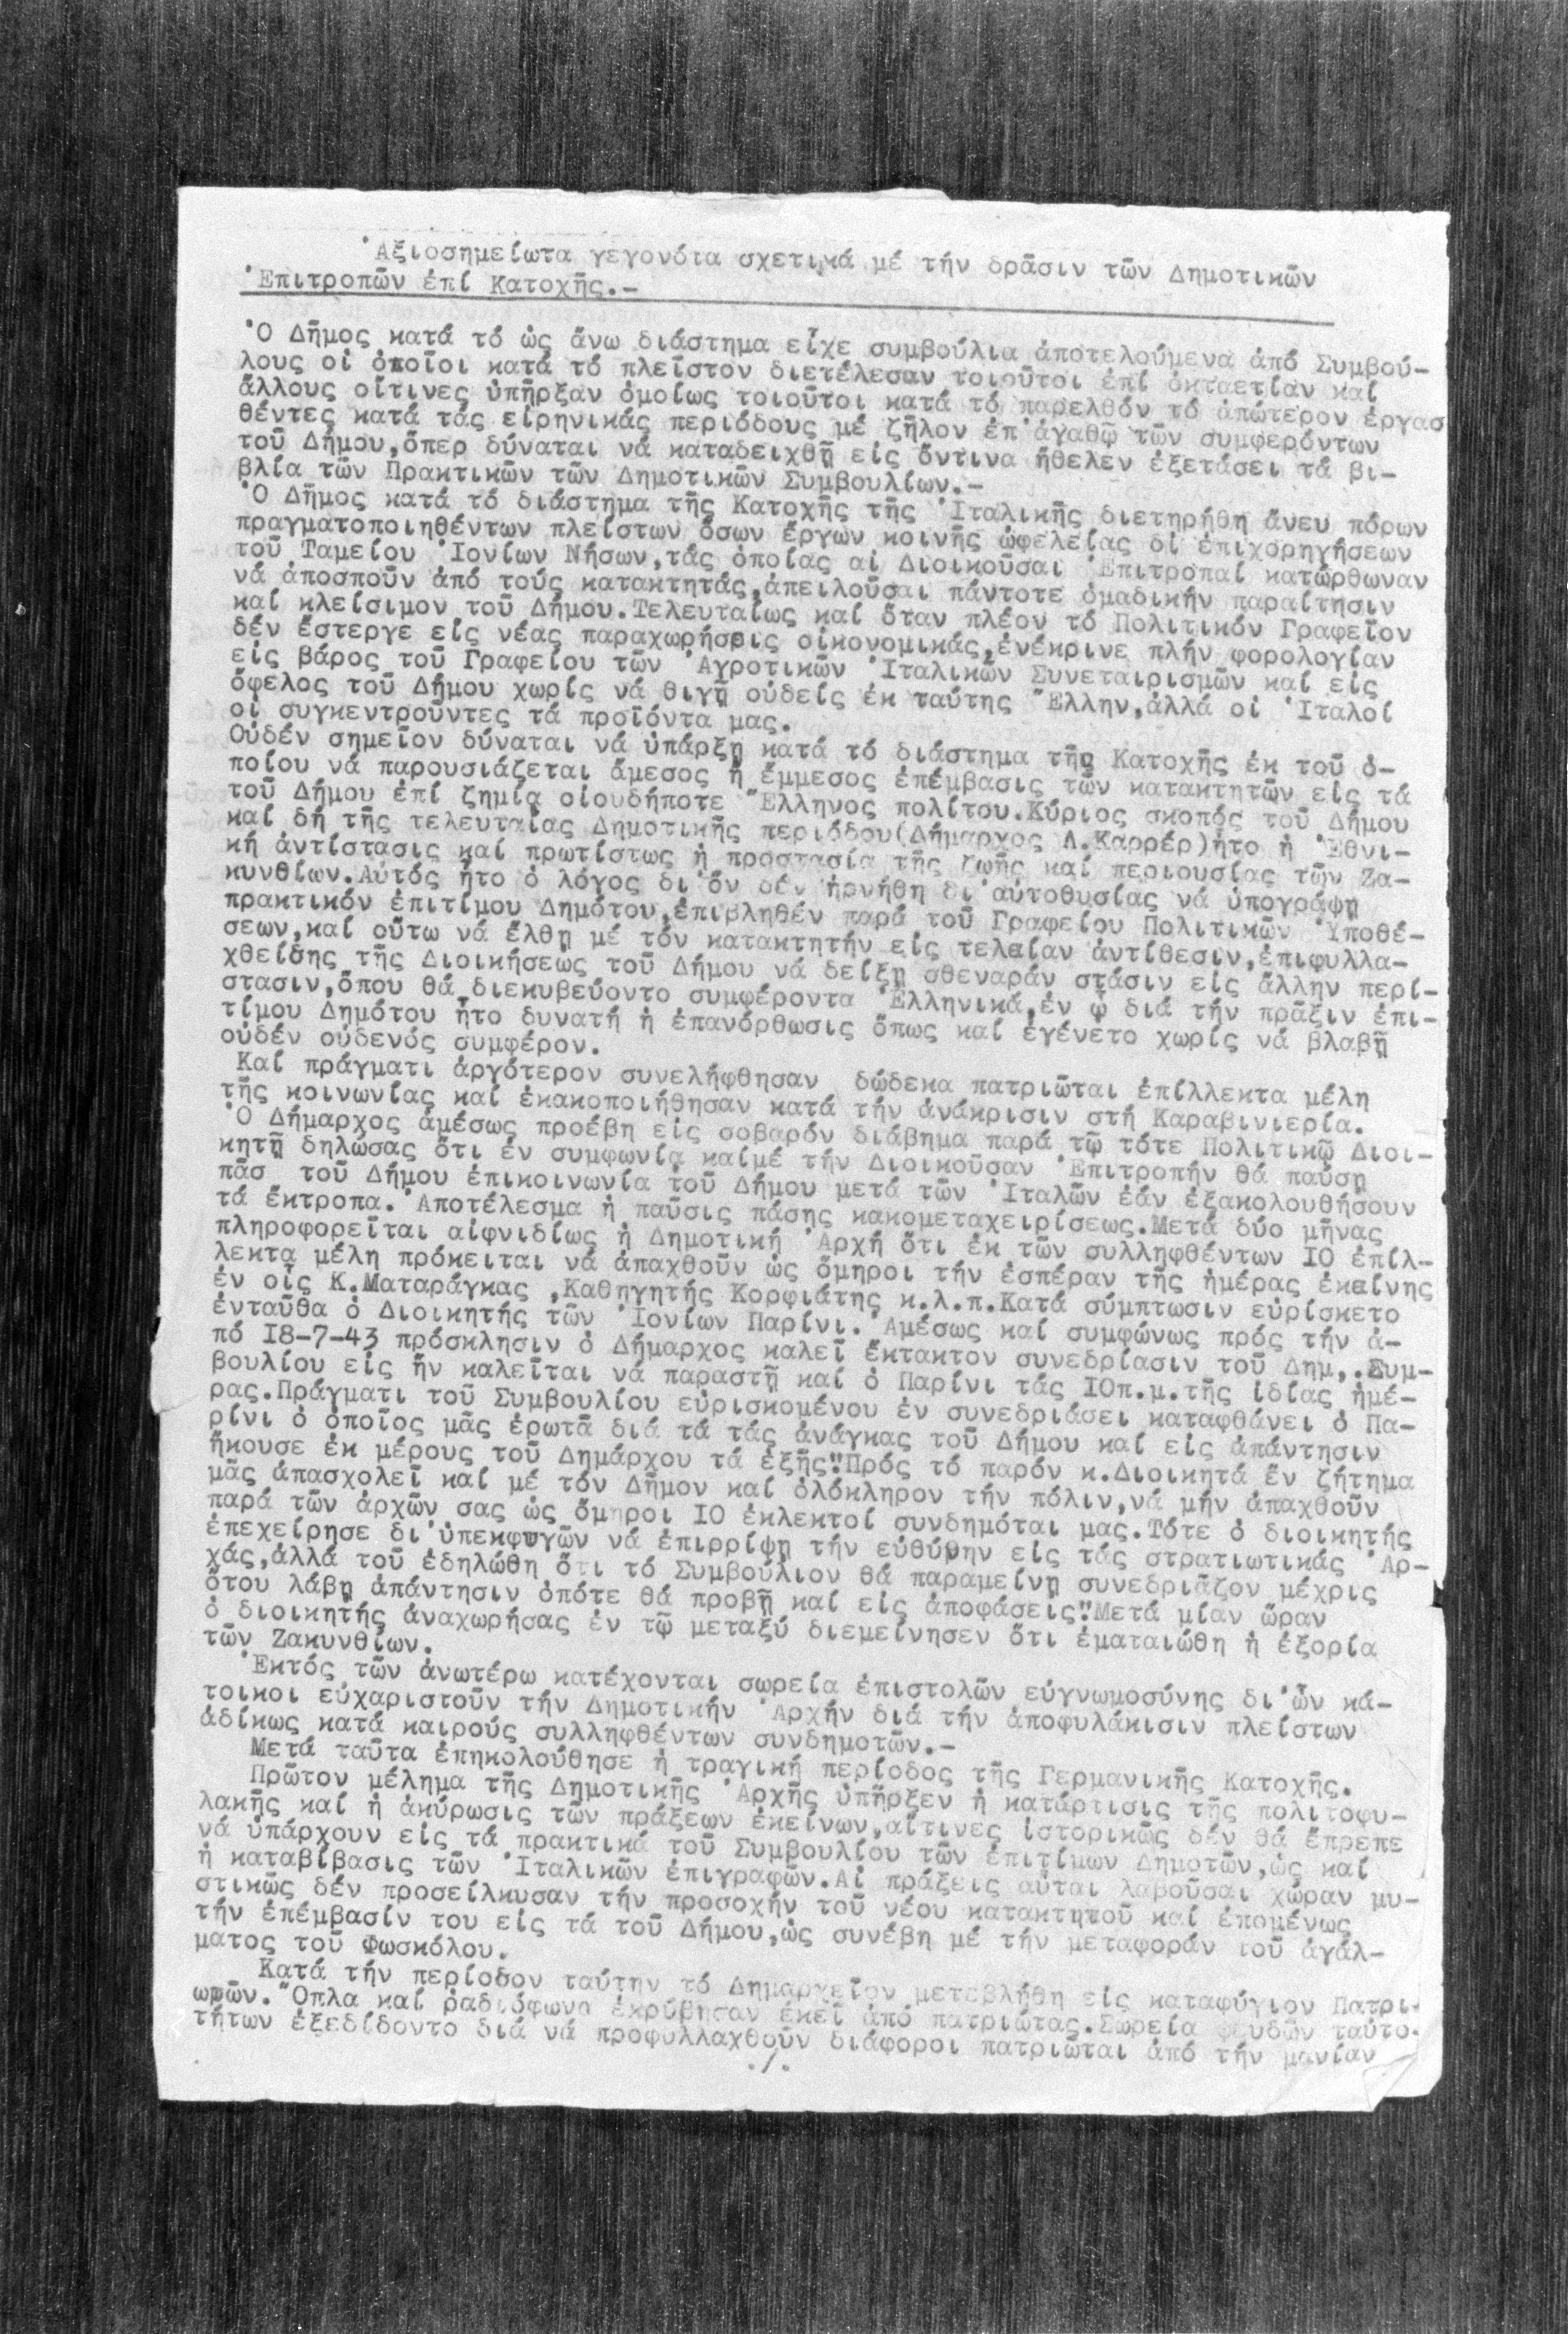 Ἀξιοσημείωτα γεγονότα σχετικά μέ τήν δρᾶσιν τῶν Δημοτικῶν
Ἐπιτροπῶν ἐπί Κατοχῆς.-
Ὁ Δῆμος κατά τό ὡς ἄνω διάστημα εἶχε συμβούλια ἀποτελούμενα ἀπό Συμβού-
λους οἱ ὁποῖοι κατά τό πλεῖστον διετέλεσαν τοιοῦτοι ἐπί ὀκταετίαν καί
ἄλλους οἵτινες ὑπῆρξαν ὁμοίως τοιοῦτοι κατά τό παρελθόν τό ἀπώτερον ἐργασ
θέντες κατά τάς εἰρηνικάς περιόδους μέ ζῆλον ἐπ'ἀγαθῷ τῶν συμφερόντων
τοῦ Δήμου,ὅπερ δύναται νά καταδειχθῇ εἰς ὅντινα ἤθελεν ἐξετάσει τά βι-
βλία τῶν Πρακτικῶν τῶν Δημοτικῶν Συμβουλίων.-
Ὁ Δῆμος κατά τό διάστημα τῆς Κατοχῆς τῆς Ἰταλικῆς διετηρήθη ἄνευ πόρων
πραγματοποιηθέντων πλείστων ὅσων ἔργων κοινῆς ὠφελείας δι ἐπιχορηγήσεων
τοῦ Ταμείου Ἰονίων Νήσων,τάς ὁποίας αἱ Διοικοῦσαι Ἐπιτροπαί κατώρθωναν
νά ἀποσποῦν ἀπό τούς κατακτητάς,ἀπειλοῦσαι πάντοτε ὁμαδικήν παραίτησιν
καί κλείσιμον τοῦ Δήμου.Τελευταίως καί ὅταν πλέον τό Πολιτικόν Γραφεῖον
δέν ἔστεργε εἰς νέας παραχωρήσεις οἰκονομικάς,ἐνέκρινε πλήν φορολογίαν
εἰς βάρος τοῦ Γραφείου τῶν Ἀγροτικῶν Ἰταλικῶν Συνεταιρισμῶν καί εἰς
ὄφελος τοῦ Δήμου χωρίς νά θιγῇ οὐδείς ἐκ ταύτης Ἕλλην,ἀλλά οἱ Ἰταλοί
οἱ συγκεντροῦντες τά προϊόντα μας.
Οὐδέν σημεῖον δύναται νά ὑπάρξῃ κατά τό διάστημα τῆς Κατοχῆς ἐκ τοῦ ὁ-
ποίου νά παρουσιάζεται ἄμεσος ἤ ἔμμεσος ἐπέμβασις τῶν κατακτητῶν εἰς τά
τοῦ Δήμου ἐπί ζημίᾳ οἱουδήποτε Ἕλληνος πολίτου.Κύριος σκοπός τοῦ Δήμου
καί δή τῆς τελευταίας Δημοτικῆς περιόδου(Δήμαρχος Λ.Καρρέρ)ἦτο ἡ Ἐθνι-
κή ἀντίστασις καί πρωτίστως ἡ προστασία τῆς ζωῆς καί περιουσίας τῶν Ζα-
κυνθίων.Αὐτός ἦτο ὁ λόγος δι'ὅν δέν ἠρνήθη δι'αὐτοθυσίας νά ὑπογράψῃ
πρακτικόν ἐπιτίμου Δημότου,ἐπιβληθέν παρά τοῦ Γραφείου Πολιτικῶν Ὑποθέ-
σεων,καί οὕτω νά ἔλθῃ μέ τόν κατακτητήν εἰς τελείαν ἀντίθεσιν,ἐπιφυλλα-
χθείσης τῆς Διοικήσεως τοῦ Δήμου νά δείξῃ σθεναράν στάσιν εἰς ἄλλην περί-
στασιν,ὅπου θά διεκυβεύοντο συμφέροντα Ἑλληνικά,ἐν ᾧ διά τήν πρᾶξιν ἐπι-
τίμου Δημότου ἦτο δυνατή ἡ ἐπανόρθωσις ὅπως καί ἐγένετο χωρίς νά βλαβῇ
οὐδέν οὐδενός συμφέρον.
Καί πράγματι ἀργότερον συνελήφθησαν δώδεκα πατριῶται ἐπίλλεκτα μέλη
τῆς κοινωνίας καί ἐκακοποιήθησαν κατά τήν ἀνάκρισιν στή Καραβινιερία.
Ὁ Δήμαρχος ἀμέσως προέβη εἰς σοβαρόν διάβημα παρά τῷ τότε Πολιτικῷ Διοι-
κητῇ δηλώσας ὅτι ἐν συμφωνίᾳ καίμέ τήν Διοικοῦσαν Ἐπιτροπήν θά παύσῃ
πᾶσ τοῦ Δήμου ἐπικοινωνία τοῦ Δήμου μετά τῶν Ἰταλῶν ἐάν ἐξακολουθήσουν
τά ἔκτροπα.Ἀποτέλεσμα ἡ παῦσις πάσης κακομεταχειρίσεως.Μετά δύο μῆνας
πληροφορεῖται αἰφνιδίως ἡ Δημοτική Ἀρχή ὅτι ἐκ τῶν συλληφθέντων ΙΟ ἐπίλ-
λεκτα μέλη πρόκειται νά ἀπαχθοῦν ὡς ὅμηροι τήν ἑσπέραν τῆς ἡμέρας ἐκείνης
ἐν οἷς Κ.Ματαράγκας ,Καθηγητής Κορφιάτης κ.λ.π.Κατά σύμπτωσιν εὑρίσκετο
ἐνταῦθα ὁ Διοικητής τῶν Ἰονίων Παρίνι.Ἀμέσως καί συμφώνως πρός τήν ἀ-
πό Ι8-7-43 πρόσκλησιν ὁ Δήμαρχος καλεῖ ἔκτακτον συνεδρίασιν τοῦ Δημ,.Συμ-
βουλίου εἰς ἥν καλεῖται νά παραστῇ καί ὁ Παρίνι τάς ΙΟπ.μ.τῆς ἰδίας ἡμέ-
ρας.Πράγματι τοῦ Συμβουλίου εὑρισκομένου ἐν συνεδριάσει καταφθάνει ὁ Πα-
ρίνι ὁ ὁποῖος μᾶς ἐρωτᾶ διά τά τάς ἀνάγκας τοῦ Δήμου καί εἰς ἀπάντησιν
ἤκουσε ἐκ μέρους τοῦ Δημάρχου τά ἑξῆς"Πρός τό παρόν κ.Διοικητά ἕν ζήτημα
μᾶς ἀπασχολεῖ καί μέ τόν Δῆμον καί ὁλόκληρον τήν πόλιν,νά μήν ἀπαχθοῦν
παρά τῶν ἀρχῶν σας ὡς ὅμηροι ΙΟ ἐκλεκτοί συνδημόται μας.Τότε ὁ διοικητής
ἐπεχείρησε δι'ὑπεκφυγῶν νά ἐπιρρίψῃ τήν εὐθύνην εἰς τάς στρατιωτικάς Ἀρ-
χάς,ἀλλά τοῦ ἐδηλώθη ὅτι τό Συμβούλιον θά παραμείνῃ συνεδριᾶζον μέχρις
ὅτου λάβῃ ἀπάντησιν ὁπότε θά προβῇ καί εἰς ἀποφάσεις"Μετά μίαν ὥραν
ὁ διοικητής ἀναχωρήσας ἐν τῷ μεταξύ διεμείνησεν ὅτι ἐματαιώθη ἡ ἐξορία
τῶν Ζακυνθίων.
Ἐκτός τῶν ἀνωτέρω κατέχονται σωρεία ἐπιστολῶν εὐγνωμοσύνης δι'ὧν κά-
τοικοι εὐχαριστοῦν τήν Δημοτικήν Ἀρχήν διά τήν ἀποφυλάκισιν πλείστων
ἀδίκως κατά καιρούς συλληφθέντων συνδημοτῶν.-
Μετά ταῦτα ἐπηκολούθησε ἡ τραγική περίοδος τῆς Γερμανικῆς Κατοχῆς.
Πρῶτον μέλημα τῆς Δημοτικῆς Ἀρχῆς ὑπῆρξεν ἡ κατάρτισις τῆς πολιτοφυ-
λακῆς καί ἡ ἀκύρωσις τῶν πράξεων ἐκείνων,αἵτινες ἱστορικῶς δέν θά ἔπρεπε
νά ὑπάρχουν εἰς τά πρακτικά τοῦ Συμβουλίου τῶν ἐπιτίμων Δημοτῶν,ὡς καί
ἡ καταβίβασις τῶν Ἰταλικῶν ἐπιγραφῶν.Αἱ πράξεις αὗται λαβοῦσαι χώραν μυ-
στικῶς δέν προσείλκυσαν τήν προσοχήν τοῦ νέου κατακτητοῦ καί ἑπομένως
τήν ἐπέμβασίν του εἰς τά τοῦ Δήμου,ὡς συνέβη μέ τήν μεταφοράν τοῦ ἀγάλ-
ματος τοῦ Φωσκόλου.
Κατά τήν περίοδον ταύτην τό Δημαρχεῖον μετεβλήθη εἰς καταφύγιον Πατρι-
ωτῶν.Ὅπλα καί ραδιόφωνα ἐκρύβησαν ἐκεῖ ἀπό πατριώτας.Σωρεία ψευδῶν ταὐτο-
τήτων ἐξεδίδοντο διά νά προφυλλαχθοῦν διάφοροι πατριῶται ἀπό τήν μανίαν
./.